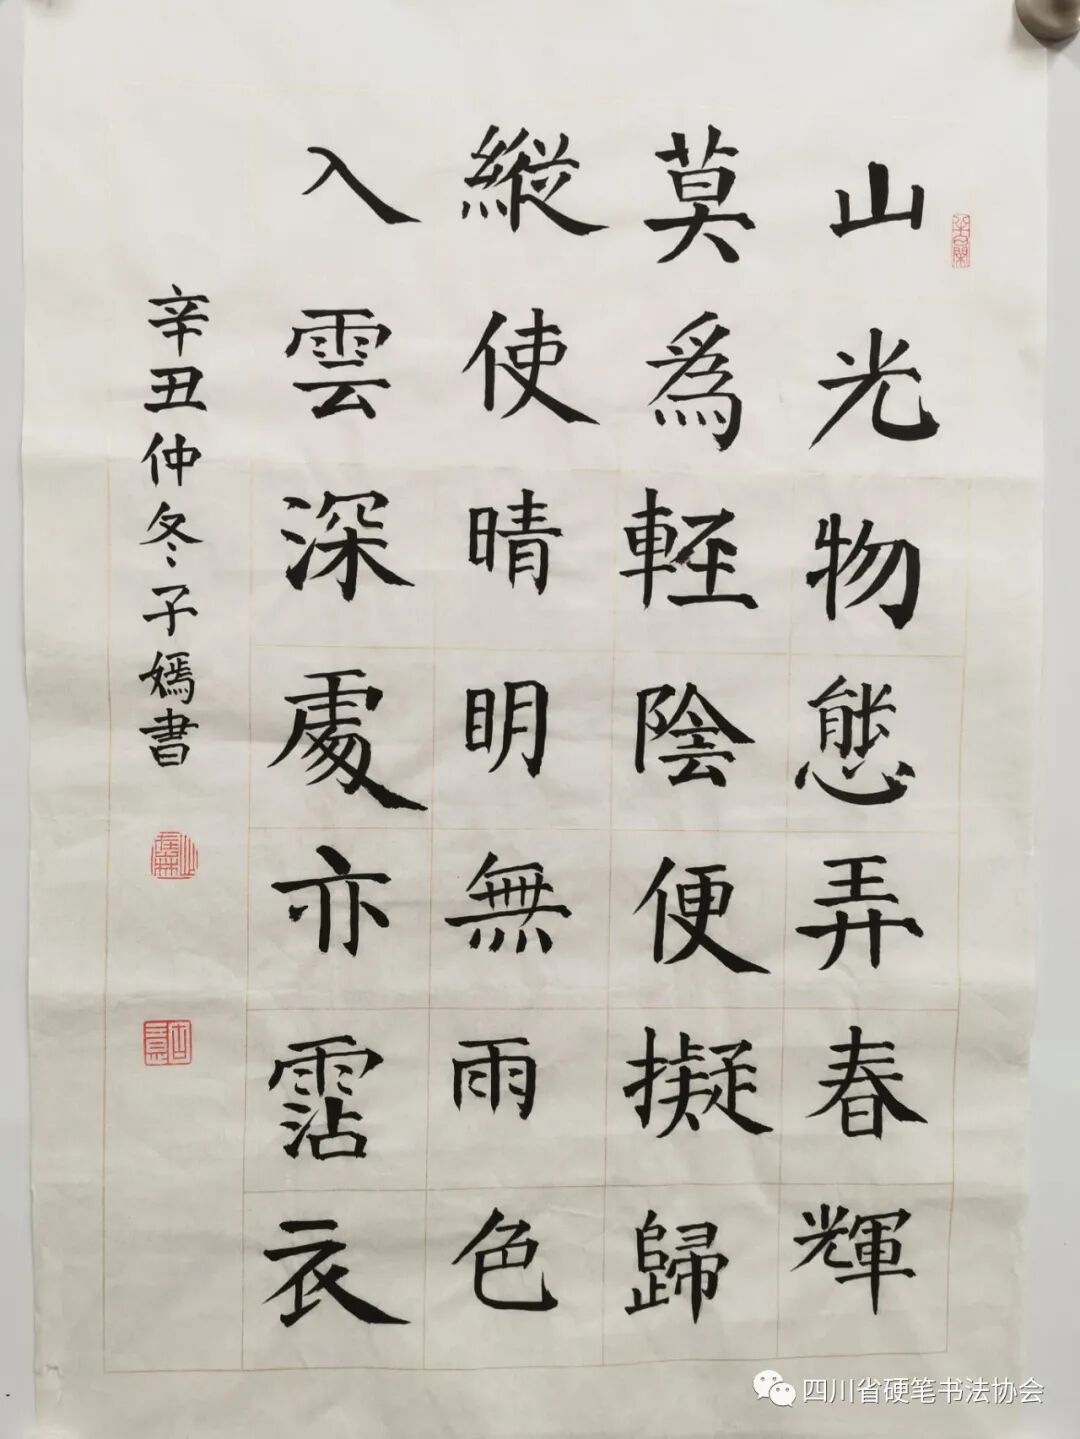 山光物態弄春輝
莫爲輕陰便擬歸
縱使晴明無雨色
入雲深處亦霑衣
辛丑仲冬子嫣書
四川省硬笔书法协会